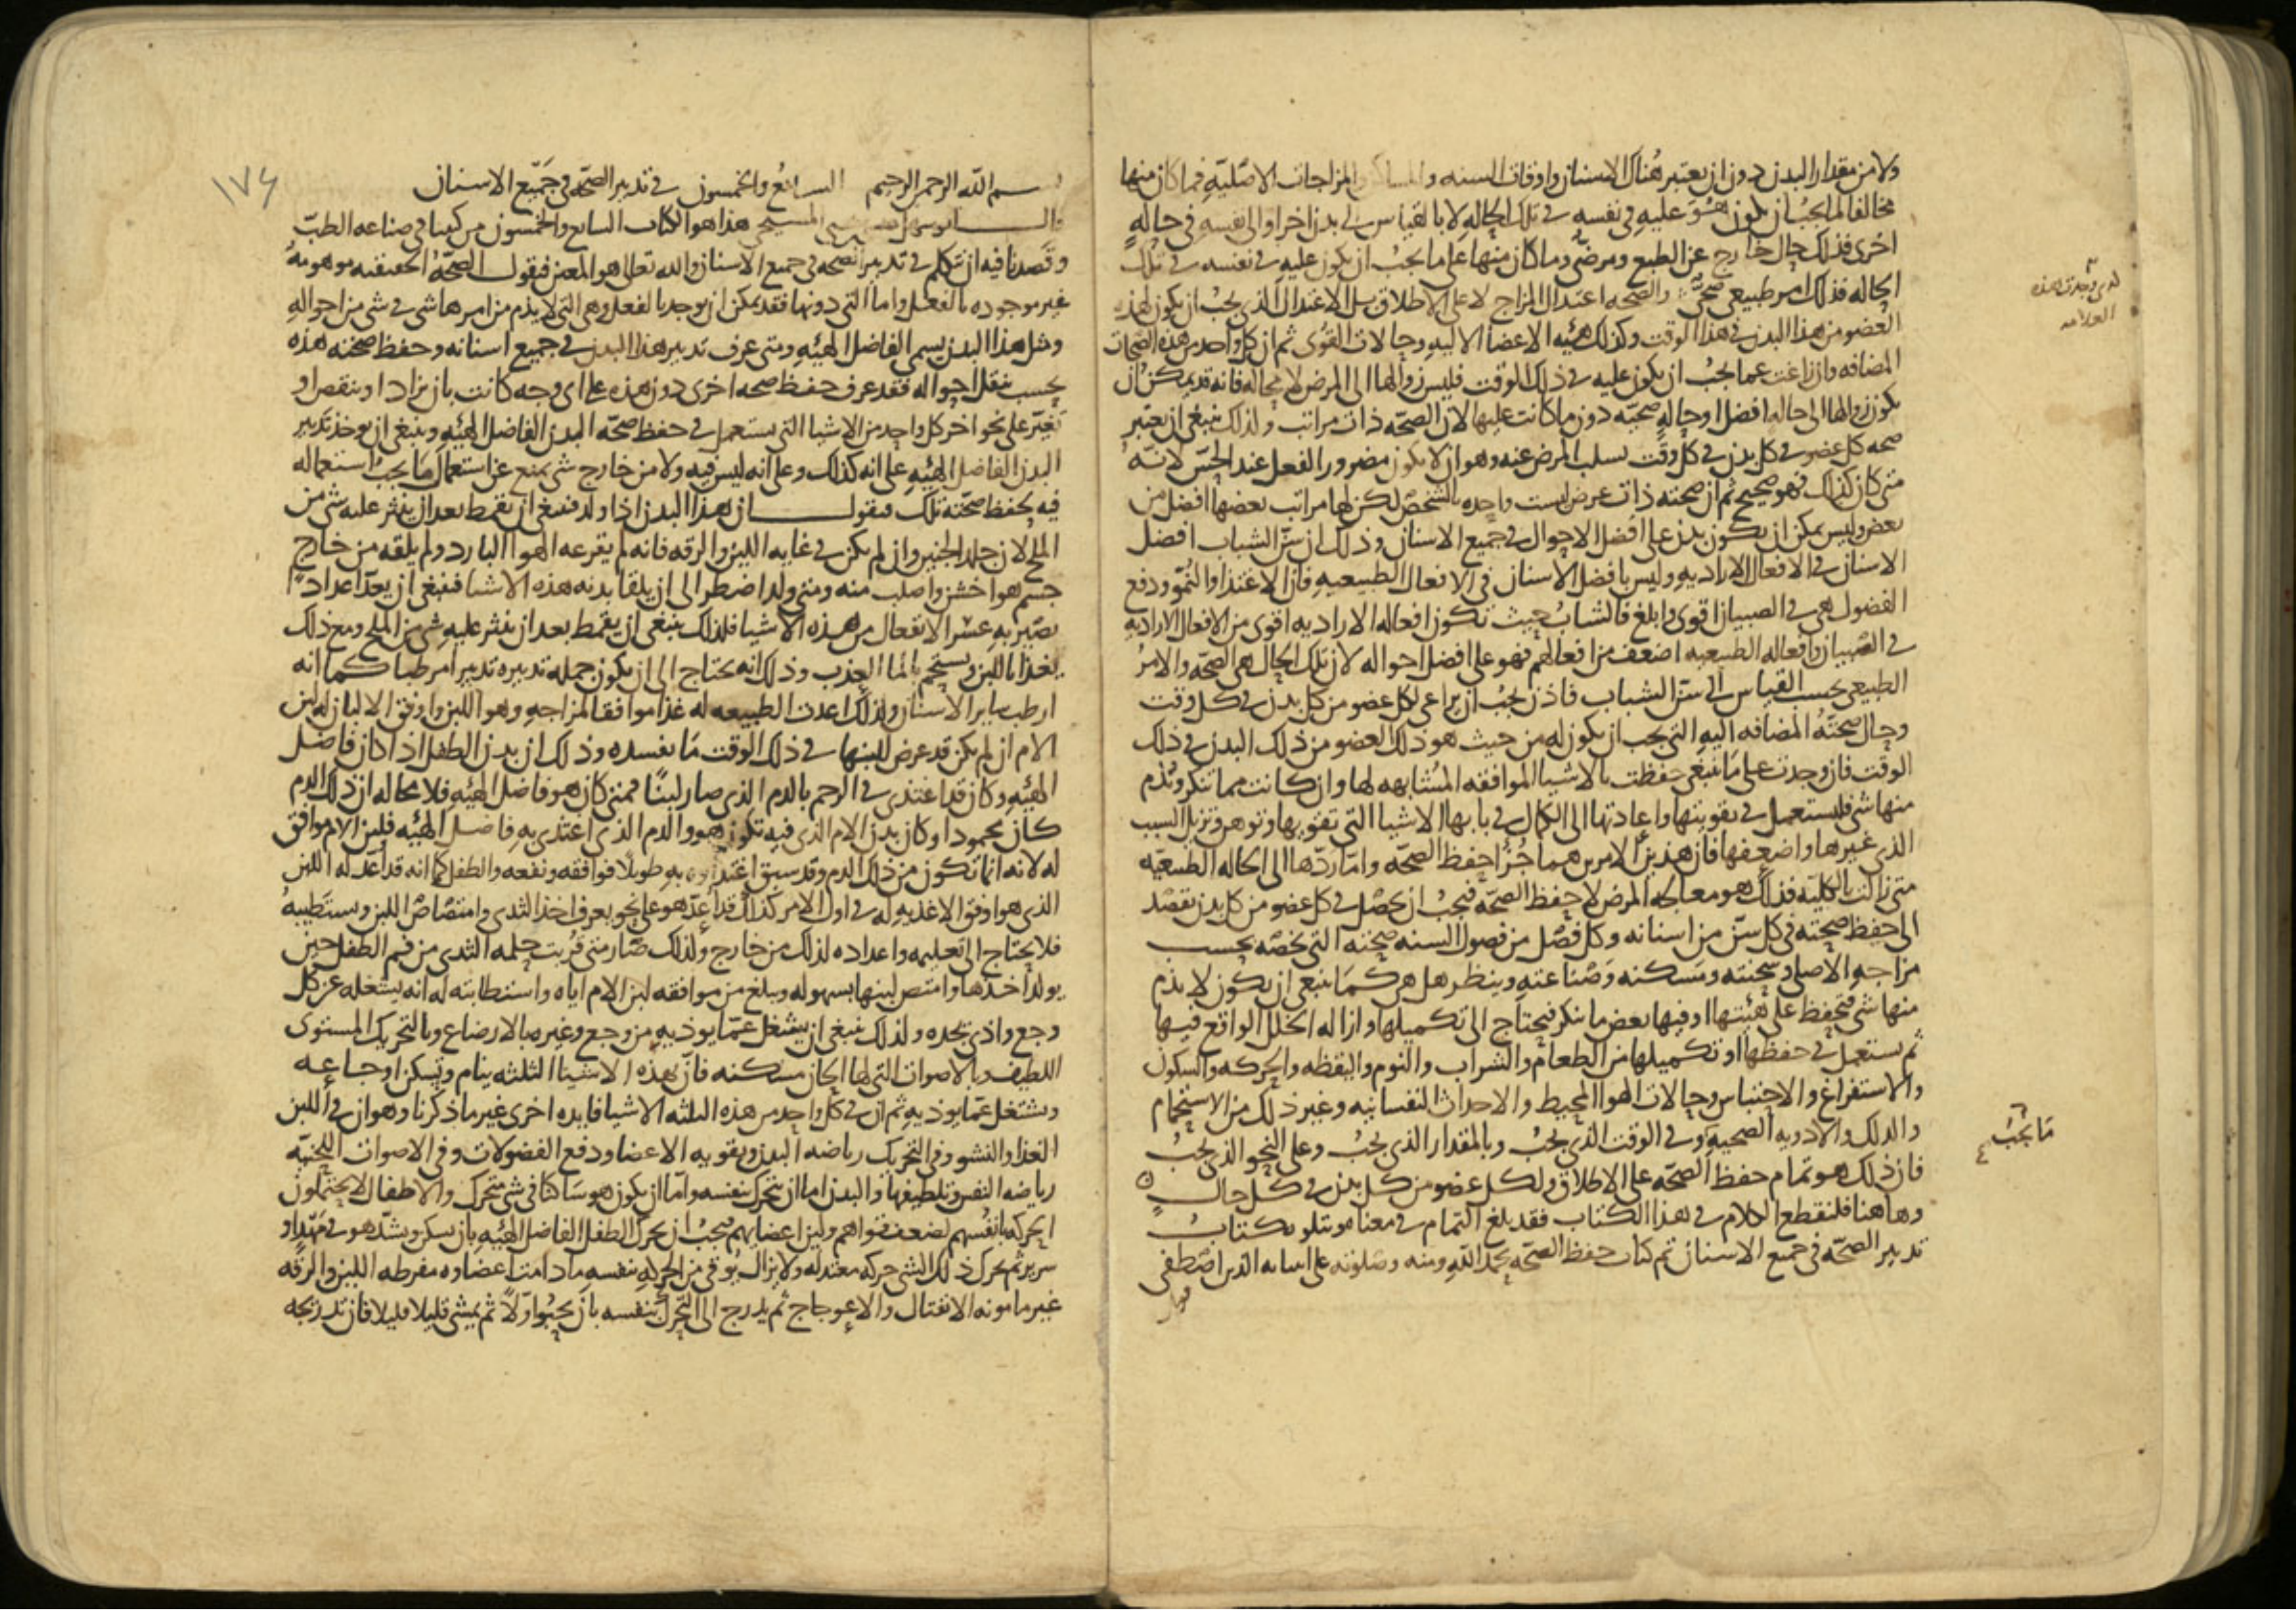 ولا من مقدار البدن دون ان يعتبر هناك الاسنان واوقات السنه والمزاجات الاصلية فما كان منها
مخالفا لما يجب ان يكون هو عليه في نفسه في تلك الحاله لا بالقياس الى بدن اخر او الى نفسه في حاله
اخرى فذلك حال خارج عن الطبع ومرضي وما كان منها على ما يجب ان يكون عليه في نفسه في تلك
الحاله فذلك امر طبيعي صحي والصحه اعتدال المزاج لا على الاطلاق بل الاعتدال الذي يجب ان يكون لهذا
العضو من هذا البدن في هذا الوقت وكذلك هيئه الاعضا الاليه وحالات القوى ثم ان كل واحد من هذه الصحات
المضافه وان زاغت عما يجب ان يكون عليه في ذلك الوقت فليس زوالها الى المرض لا محاله فانه قد يمكن ان
يكون زوالها الى حاله افضل او حاله صحيه دون ما كانت عليها لان الصحه ذات مراتب ولذلك ينبغي ان يعتبر
صحه كل عضو في كل بدن في كل وقت بسلب المرض عنه وهو ان لا يكون مضرور الفعل عند الحس لانه
متى كان كذلك فهو صحيح ثم ان صحته ذات عرض ليست واحده بالشخص لكن لها مراتب بعضها افضل من
بعض وليس يمكن ان يكون بدن على افضل الاحوال في جميع الاسنان وذلك ان سن الشباب افضل
الاسنان في الافعال الاراديه وليس بافضل الاسنان في الافعال الطبيعيه فان الاغتذا والنمو ودفع
الفضول هي في الصبيان اقوى وابلغ فالشاب حيث تكون افعاله الاراديه اقوى من الافعال الاراديه
في الصبيان وافعاله الطبيعيه اضعف من افعالهم فهو على افضل احواله لان تلك الحال هي الصحه والامر
الطبيعي بحسب القياس الى سن الشباب فاذن يجب ان يراعى لكل عضو من كل بدن في كل وقت
وحال صحته المضافه اليه التي يجب ان يكون له من حيث هو ذلك العضو من ذلك البدن في ذلك
الوقت فان وجدت على ما ينبغي حفظت بالاشيا الموافقه المشابهه لها وان كانت مما تنكر وتذم
منها شي فليستعمل في تقويتها واعادتها الى الكمال في بابها الاشيا التي تقويها وتوفر وتزيل السبب
الذي غيرها واضعفها فان هذين الامرين هما جزا حفظ الصحه واما ردها الى الحاله الطبيعيه
متى زالت بالكليه فذلك هو معالجه المرض لا حفظ الصحه فيجب ان يحصل في كل عضو من كل بدن تقصد
الى حفظ صحته في كل سن من اسنانه وكل فصل من فصول السنه صحته التي تخصه بحسب
مزاجه الاصلي وسحنته ومسكنه وصناعته وينظر هل هي كما ينبغي ان يكون لا يذم
منها شي فتحفظ على هيئتها او فيها بعض ما ينكر فيحتاج الى تكميلها وازاله الخلل الواقع فيها
ثم يستعمل في حفظها او تكميلها من الطعام والشراب والنوم واليقظه والحركه والسكون
والاستفراغ والاحتباس وحالات الهوا المحيط والاحداث النفسانيه وغير ذلك من الاستحمام
والدلك والادويه الصحيه وفي الوقت الذي يجب وبالمقدار الذي يجب وعلى النحو الذي يجب
ما يجب
فان ذلك هو تمام حفظ الصحه على الاطلاق ولكل عضو من كل بدن في كل حال
وهاهنا فلنقطع الكلام في هذا الكتاب فقد بلغ التمام في معناه ويتلوه كتاب
تدبير الصحه في جميع الاسنان تم كتاب حفظ الصحه بحمد الله ومنه وصلوته على انبيائه الذين اصطفى
بسم الله الرحمن الرحيم السابع والخمسون في تدبير الصحة في جميع الاسنان
١٧٤
قال ابو سهل المسيحي هذا هو الكتاب السابع والخمسون من كتبنا في صناعه الطب
وقصدنا فيه ان نتكلم في تدبير الصحه في جميع الاسنان والله تعالى هو المعين فنقول الصحة الحقيقيه موهومه
غير موجوده بالفعل واما التي دونها فقد يمكن ان يوجد بالفعل وهي التي لا يذم من امرها شي في شي من احواله
ومثل هذا البدن يسمى الفاضل الهيئه ومتى عرف تدبير هذا البدن في جميع اسنانه وحفظ صحته هذه
بحسب تنقل احواله فقد عرف حفظ صحه اخرى دون هذه على اي وجه كانت بان يزاد او ينقص او
تغير على نحو اخر كل واحد من الاشيا التي يستعمل في حفظ صحه البدن الفاضل الهيئه وينبغي ان يوخذ تدبير
البدن الفاضل الهيئه على انه كذلك وعلى انه ليس فيه ولا من خارج شي يمنع عن استعمال ما يجب استعماله
فيه لحفظ صحته تلك فنقول ان هذا البدن اذا ولد فينبغي ان يقمط بعد ان ينثر عليه شي من
الملح لان جلد الجنين وان لم يكن في غايه اللين والرقه فانه لم يقرعه الهوا البارد ولم يلقه من خارج
جسم هو اخشن واصلب منه ومتى ولد اضطر الى ان يلقا بدنه هذه الاشيا فينبغي ان يعد اعدادا
يصير به عسر الانفعال من هذه الاشيا فلذلك ينبغي ان يقمط بعد ان ينثر عليه شي من الملح ومع ذلك
يغذا باللبن ويستحم بالما العذب وذلك انه يحتاج الى ان يكون جمله تدبيره تدبيرا مرطبا كما انه
ارطب ساير الاسنان ولذلك اعدت الطبيعه له غذا موافقا لمزاجه وهو اللبن واوفق الالبان له لبن
الام ان لم يكن قد عرض للبنها في ذلك الوقت ما يفسده وذلك ان بدن الطفل اذا كان فاضل
الهيئه وكان قد اغتذى في الرحم بالدم الذي صار لبنا فمتى كان هو فاضل الهيئه فلا محاله ان ذلك الدم
كان محمودا وكان بدن الام الذي فيه تكون هو والدم الذي اغتذى به فاضل الهيئه فلبن الام موافق
له لانه انما تكون من ذلك الدم وقد سبق اغتذاوه به طويلا فوافقه ونفعه والطفل كما انه قد اعد له اللبن
الذي هو اوفق الاغذيه له في اول الامر كذلك قد اعد هو على نحو يعرف اخذ الثدي وامتصاص اللبن ويستطيبه
فلا يحتاج الى تعليمه واعداده لذلك من خارج ولذلك صار متى قربت حلمه الثدي من فم الطفل حين
يولد اخذها وامتص لبنها بسهوله ويبلغ من موافقه لبن الام اياه واستطابته له انه يشغله عن كل
وجع واذى يجده ولذلك ينبغي ان يشغل عما يوذيه من وجع وغيره بالارضاع وبالتحريك المستوى
اللطيف وبالاصوات التي لها الحان مسكنه فان هذه الاشيا الثلثه ينام وتسكن اوجاعه
ويشتغل عما يوذيه ثم ان في كل واحد من هذه الثلثه الاشيا فايده اخرى غير ما ذكرنا وهو ان في اللبن
الغذا والنشو وفي التحريك رياضه البدن وتقويه الاعضا ودفع الفضولات وفي الاصوات اللحنيه
رياضه النفس وتلطيفها والبدن اما ان يتحرك بنفسه واما ان يكون هو ساكنا في شي متحرك والاطفال لا يحتملون
الحركه بانفسهم لضعف قواهم ولين اعضايهم فيجب ان يحرك الطفل الفاضل الهيئه بان يسكن ويشد هو في مهد او
سرير ثم يحرك ذلك الشي حركه معتدله ولا يزال يوقى من الحركه بنفسه ما دامت اعضاوه مفرطه اللين والرقه
غير مامونه الانفتال والاعوجاج ثم يدرج الى التحرك بنفسه بان يحبو اولا ثم يمشي قليلا قليلا فان تدريجه